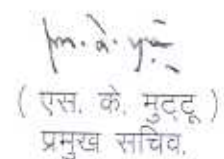 ( एस. के. मुट्टू )
प्रमुख सचिव.